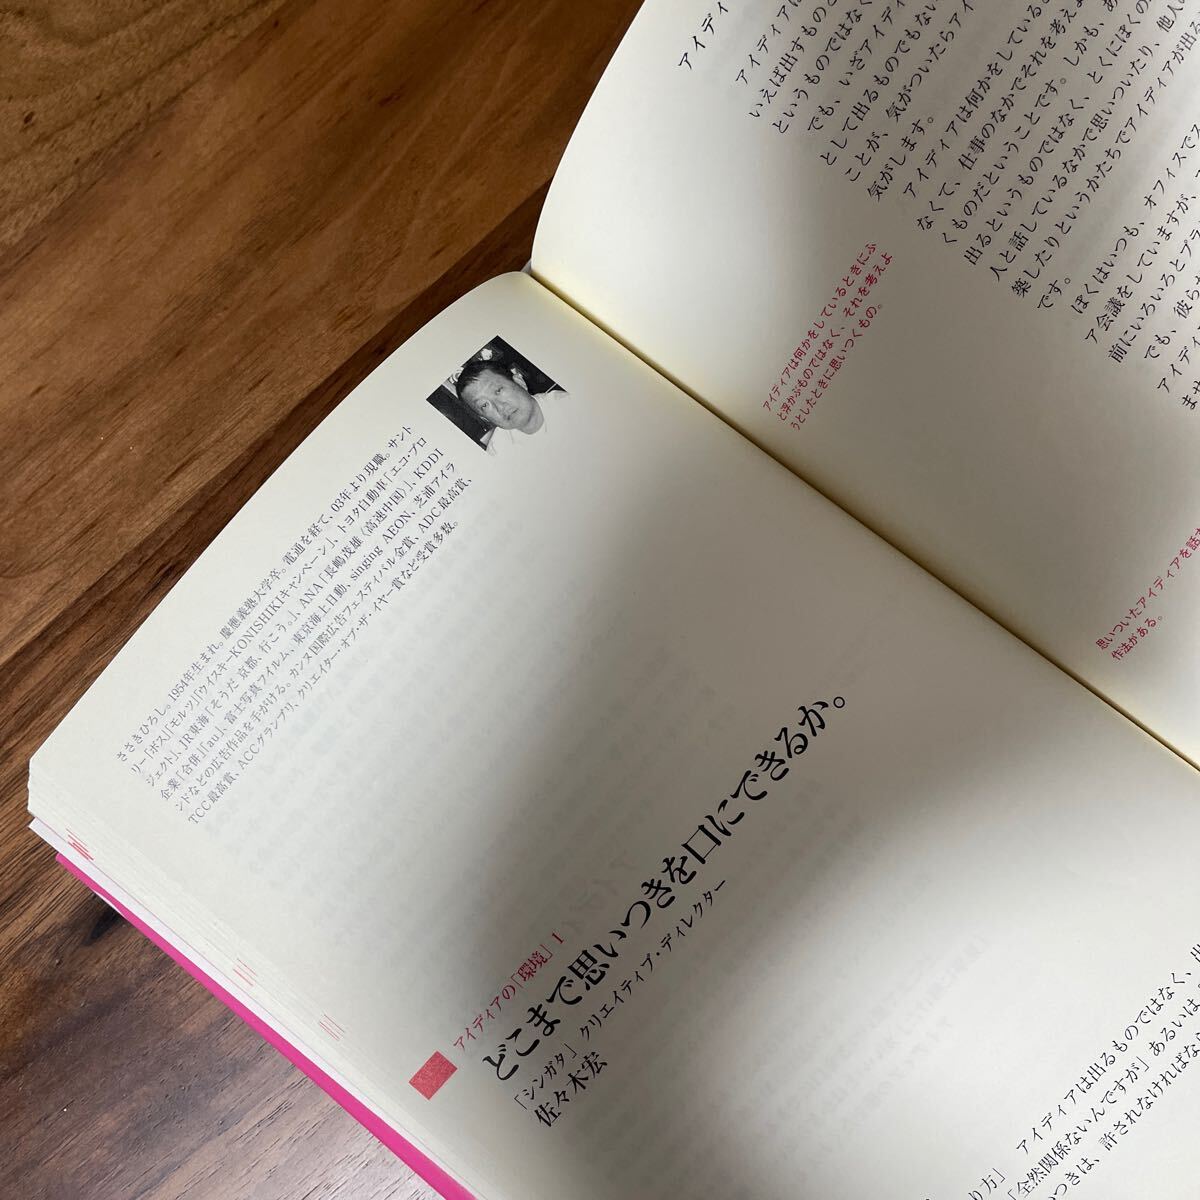 アイディアの「環境」1
どこまで思いつきを口にできるか。
「シンガタ」クリエイティブ・ディレクター
佐々木宏
ささきひろし。1954年生まれ。慶應義塾大学卒。電通を経て、03年より現職。サント
リー「ボス」「モルツ」「ウイスキーKONISHIKIキャンペーン」、トヨタ自動車「エコ・プロ
ジェクト」、JR東海「そうだ 京都、行こう。」、ANA「長嶋茂雄（高速中国）」、KDDI
企業「合併」「au」、富士写真フイルム、東京海上日動、singing AEON、芝浦アイラ
ンドなどの広告作品を手がける。カンヌ国際広告フェスティバル金賞、ADC最高賞、
TCC最高賞、ACCグランプリ、クリエイター・オブ・ザ・イヤー賞など受賞多数。
り方」 アイディアは出るものではなく、出
「全然関係ないんですが」あるいは
つきは、許されなければなら
アイデ
アイディアは
いえば出すものと
というものではなく
でも、いざアイディ
として出るものでもない
ことが、気がついたらアイ
気がします。
アイディアは何かをしている
なくて、仕事のなかでそれを考えよ
くものだということです。しかも、あ
出るというものではなく、とくにぼくの
人と話しているなかで思いついたり、他人
築したりというかたちでアイディアが出る
です。
ぼくはいつも、オフィスでス
ア会議をしていますが、
前にいろいろとプラ
でも、彼ら
アイディ
ませ
アイディアは何かをしているときにふ
と浮かぶものではなく、それを考えよ
うとしたときに思いつくもの。
思いついたアイディアを話す
作法がある。